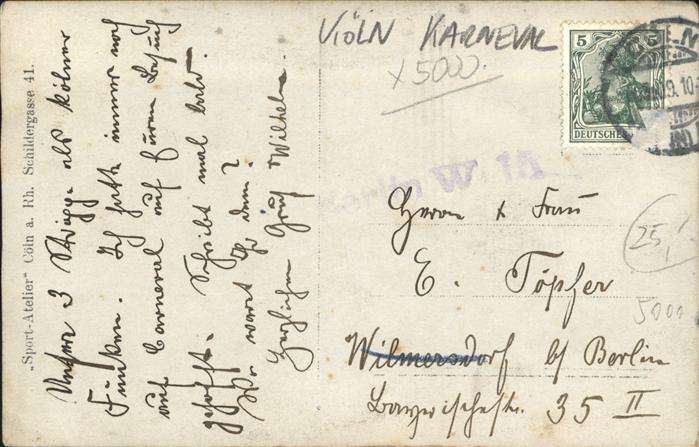 "Sport-Atelier" Cöln a. Rh. Schildergasse 41.
Unsere 3 als Kölner
Funken. Ich hatte immer noch
auf Carneval auf Euren Besuch
gehofft. Schreibt mal bald.
Wo wart Ihr denn?
Herzlichen Gruß Wilhelm.
KÖLN KARNEVAL
x 5000.
5 5
DEUTSCHES
Berlin W. 15
Herrn & Frau
E. Töpfer
Wilmersdorf b/ Berlin
Bayerischestr. 35 II
25,/
5000